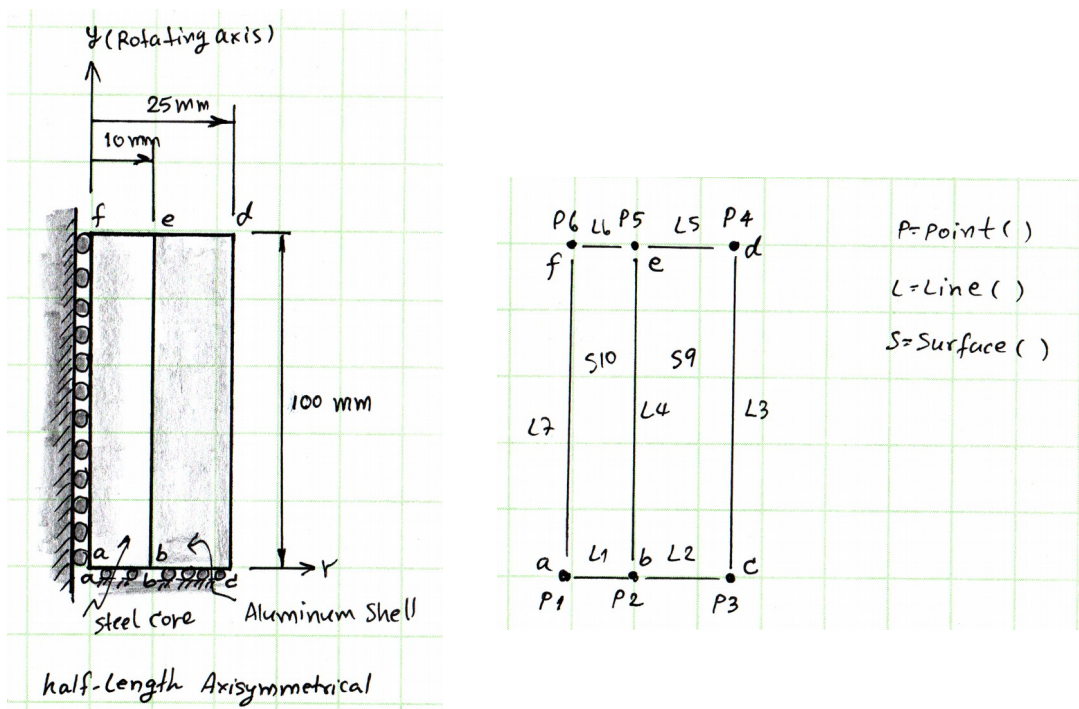 y (Rotating axis)
25 mm
10 mm
f e d
100 mm
a b
a b c r
steel core
Aluminum Shell
half-Length Axisymmetrical
P6 L6 P5 L5 P4
f e d
S10 S9
L7 L4 L3
a L1 b L2 c
P1 P2 P3
P=Point ( )
L=Line ( )
S=Surface ( )